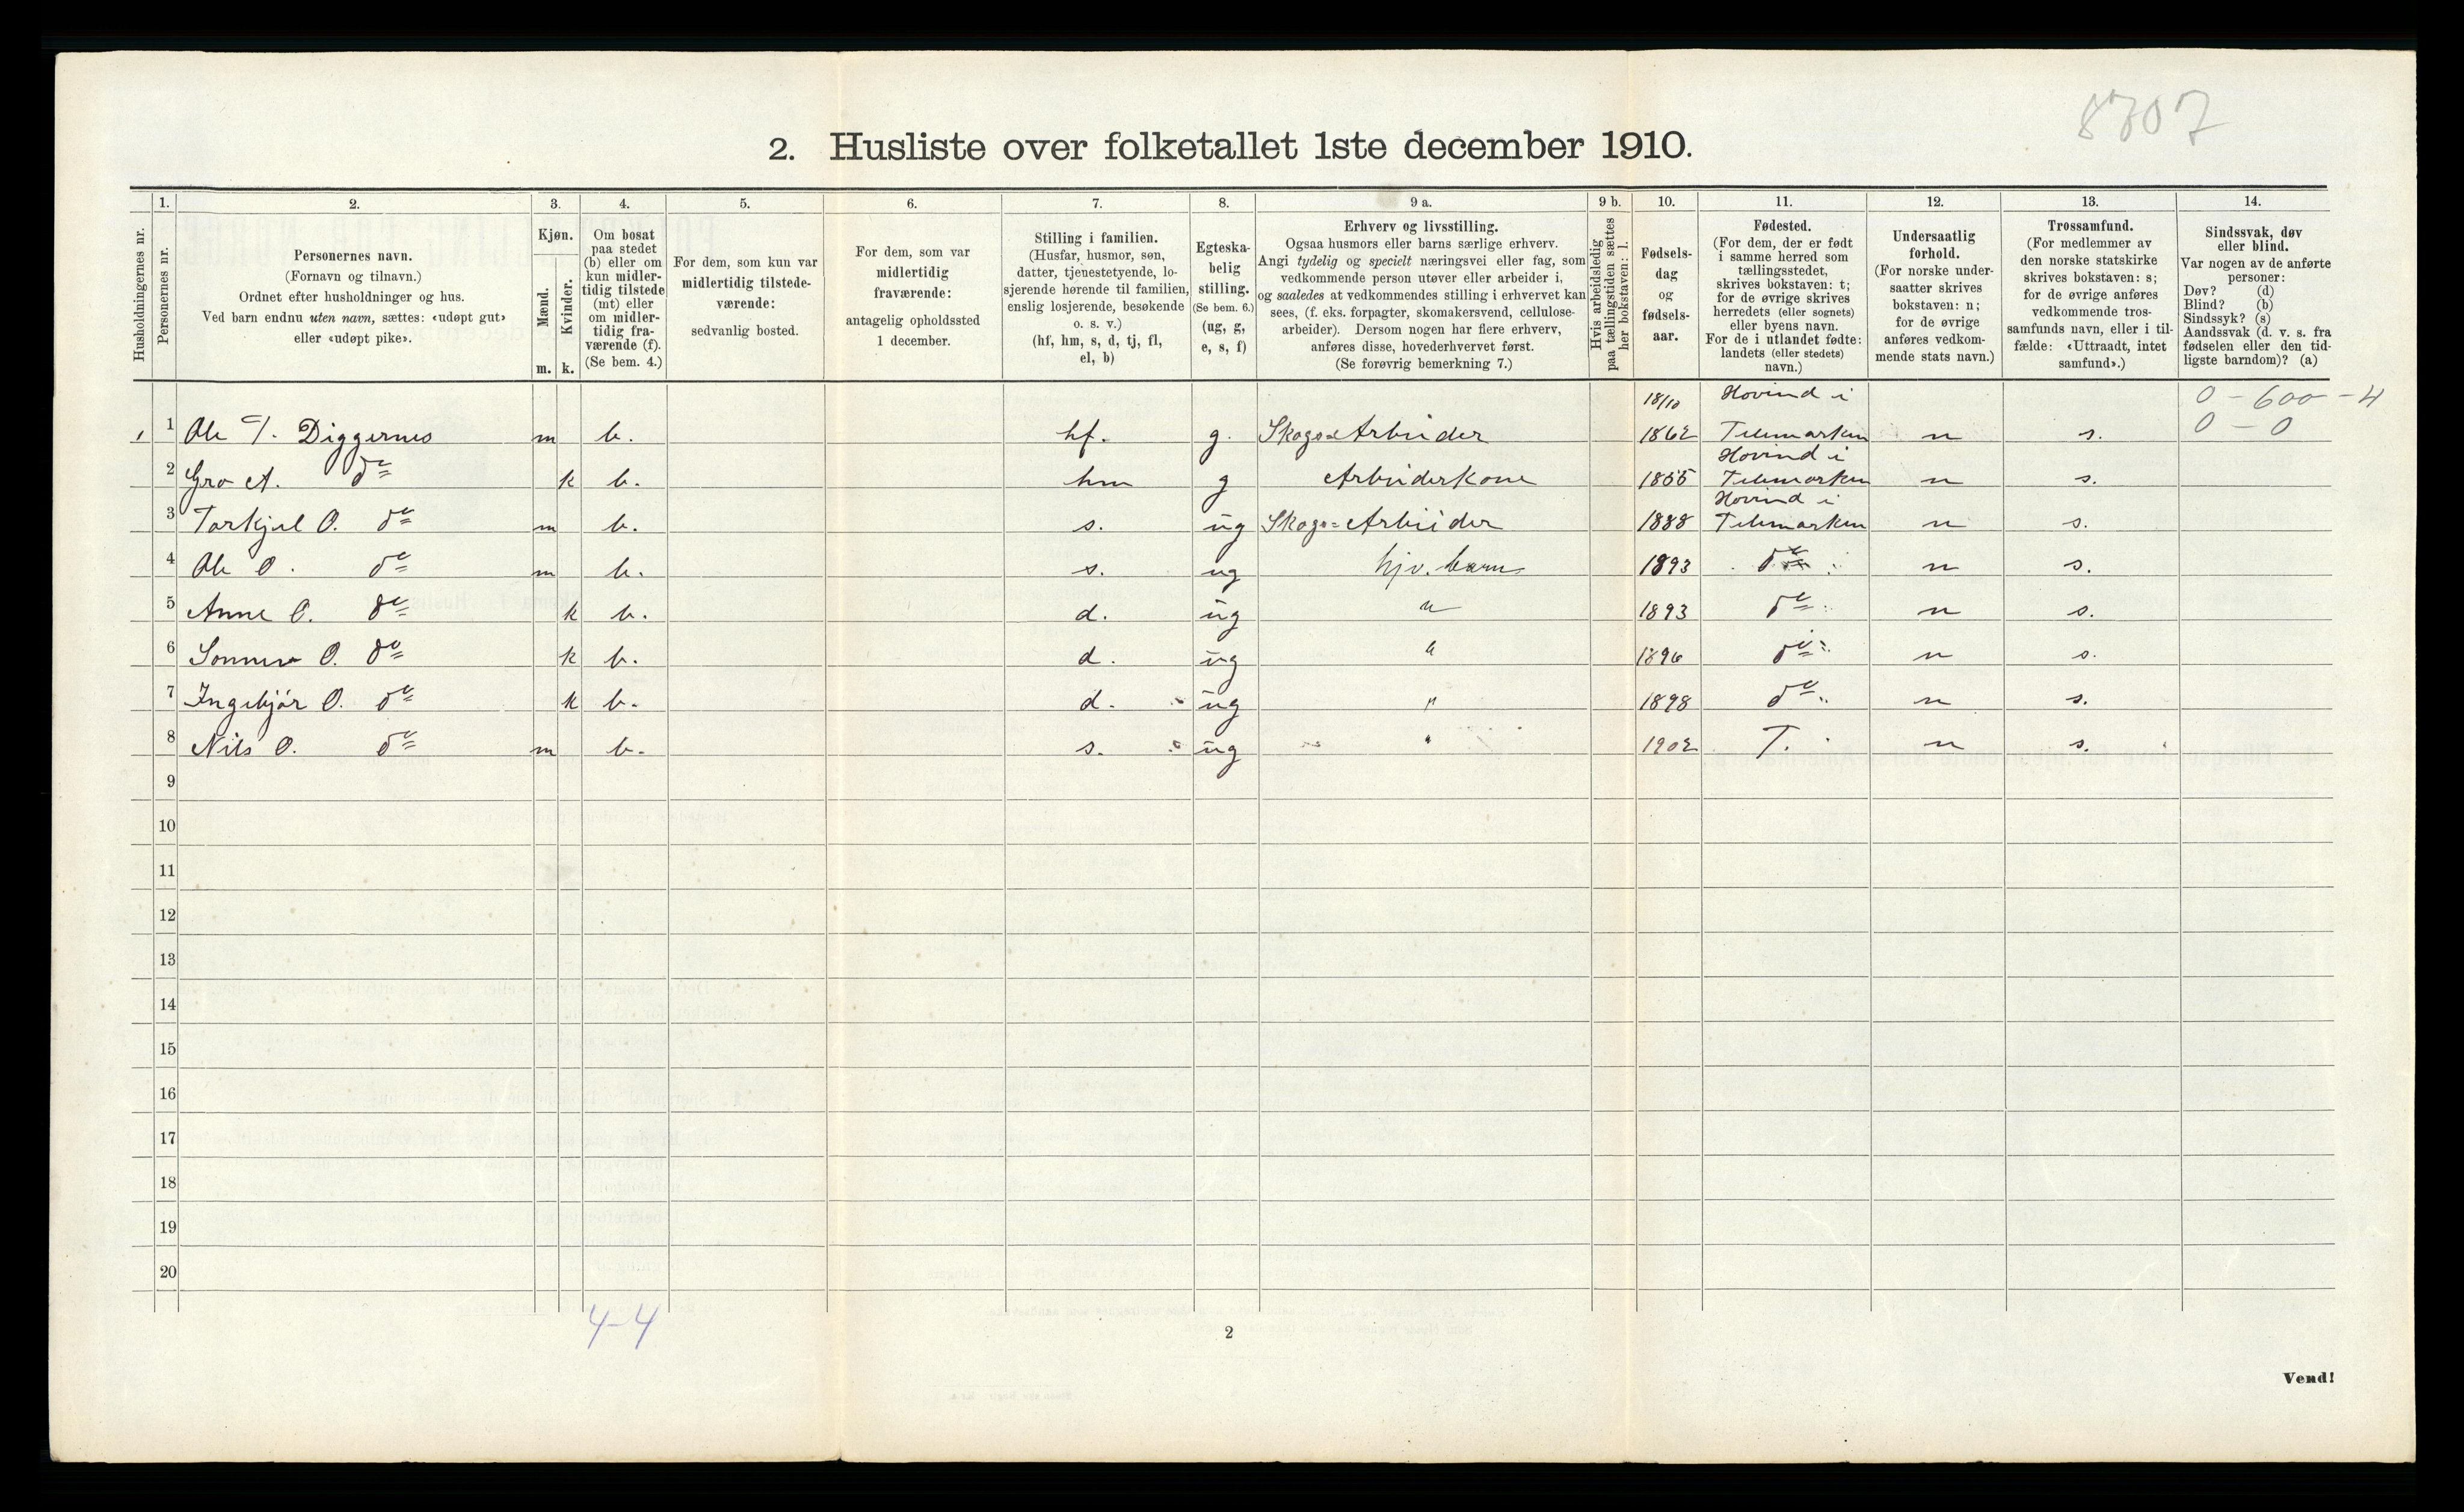 8707
2. Husliste over folketallet 1ste december 1910.
Husholdningernes nr.
1.
Personernes nr.
2.
Personernes navn.
(Fornavn og tilnavn.)
Ordnet efter husholdninger og hus.
Ved barn endnu uten navn, sættes: «udøpt gut»
eller «udøpt pike».
3.
Kjøn.
Mænd.
Kvinder.
m. k.
4.
Om bosat
paa stedet
(b) eller om
kun midler-
tidig tilstede
(mt) eller
om midler-
tidig fra-
værende (f).
(Se bem. 4.)
5.
For dem, som kun var
midlertidig tilstede-
værende:
sedvanlig bosted.
6.
For dem, som var
midlertidig
fraværende:
antagelig opholdssted
1 december.
7.
Stilling i familien.
(Husfar, husmor, søn,
datter, tjenestetyende, lo-
sjerende hørende til familien,
enslig losjerende, besøkende
o. s. v.)
(hf, hm, s, d, tj, fl,
el, b)
8.
Egteska-
belig
stilling.
(Se bem. 6.)
(ug, g,
e, s, f)
9 a.
Erhverv og livsstilling.
Ogsaa husmors eller barns særlige erhverv.
Angi tydelig og specielt næringsvei eller fag, som
vedkommende person utøver eller arbeider i,
og saaledes at vedkommendes stilling i erhvervet kan
sees, (f. eks. forpagter, skomakersvend, cellulose-
arbeider). Dersom nogen har flere erhverv,
anføres disse, hovederhvervet først.
(Se forøvrig bemerkning 7.)
9 b.
Hvis arbeidsledig
paa tællingstiden sættes
her bokstaven: l.
10.
Fødsels-
dag
og
fødsels-
aar.
11.
Fødested.
(For dem, der er født
i samme herred som
tællingsstedet,
skrives bokstaven: t;
for de øvrige skrives
herredets (eller sognets)
eller byens navn.
For de i utlandet fødte:
landets (eller stedets)
navn.)
12.
Undersaatlig
forhold.
(For norske under-
saatter skrives
bokstaven: n;
for de øvrige
anføres vedkom-
mende stats navn.)
13.
Trossamfund.
(For medlemmer av
den norske statskirke
skrives bokstaven: s;
for de øvrige anføres
vedkommende tros-
samfunds navn, eller i til-
fælde: «Uttraadt, intet
samfund».)
14.
Sindssvak, døv
eller blind.
Var nogen av de anførte
personer:
Døv? (d)
Blind? (b)
Sindssyk? (s)
Aandssvak (d. v. s. fra
fødselen eller den tid-
ligste barndom)? (a)
18/10 Hovind i 0 - 600 - 4
1 1 Ole T. Diggernes m b. hf. g. Skogs=Arbeider 1862 Telemarken n s. 0 - 0
Hovind i
2 Gro A. do k b. hm g Arbeiderkone 1855 Telemarken n s.
Hovind i
3 Torkjel O. do m b. s. ug Skogs=Arbeider 1888 Telemarken n s.
4 Ole O. do m b. s. ug hjv. barn 1893 do n s.
5 Anne O. do k b. d. ug " 1893 do n s.
6 O. do k b. d. ug " 1896 do n s.
7 Ingebjór O. do k b. d. ug " 1898 do n s.
8 Nils O. do m b. s. ug " 1902 T. n s.
9
10
11
12
13
14
15
16
17
18
19
20
4-4
2
Vend!